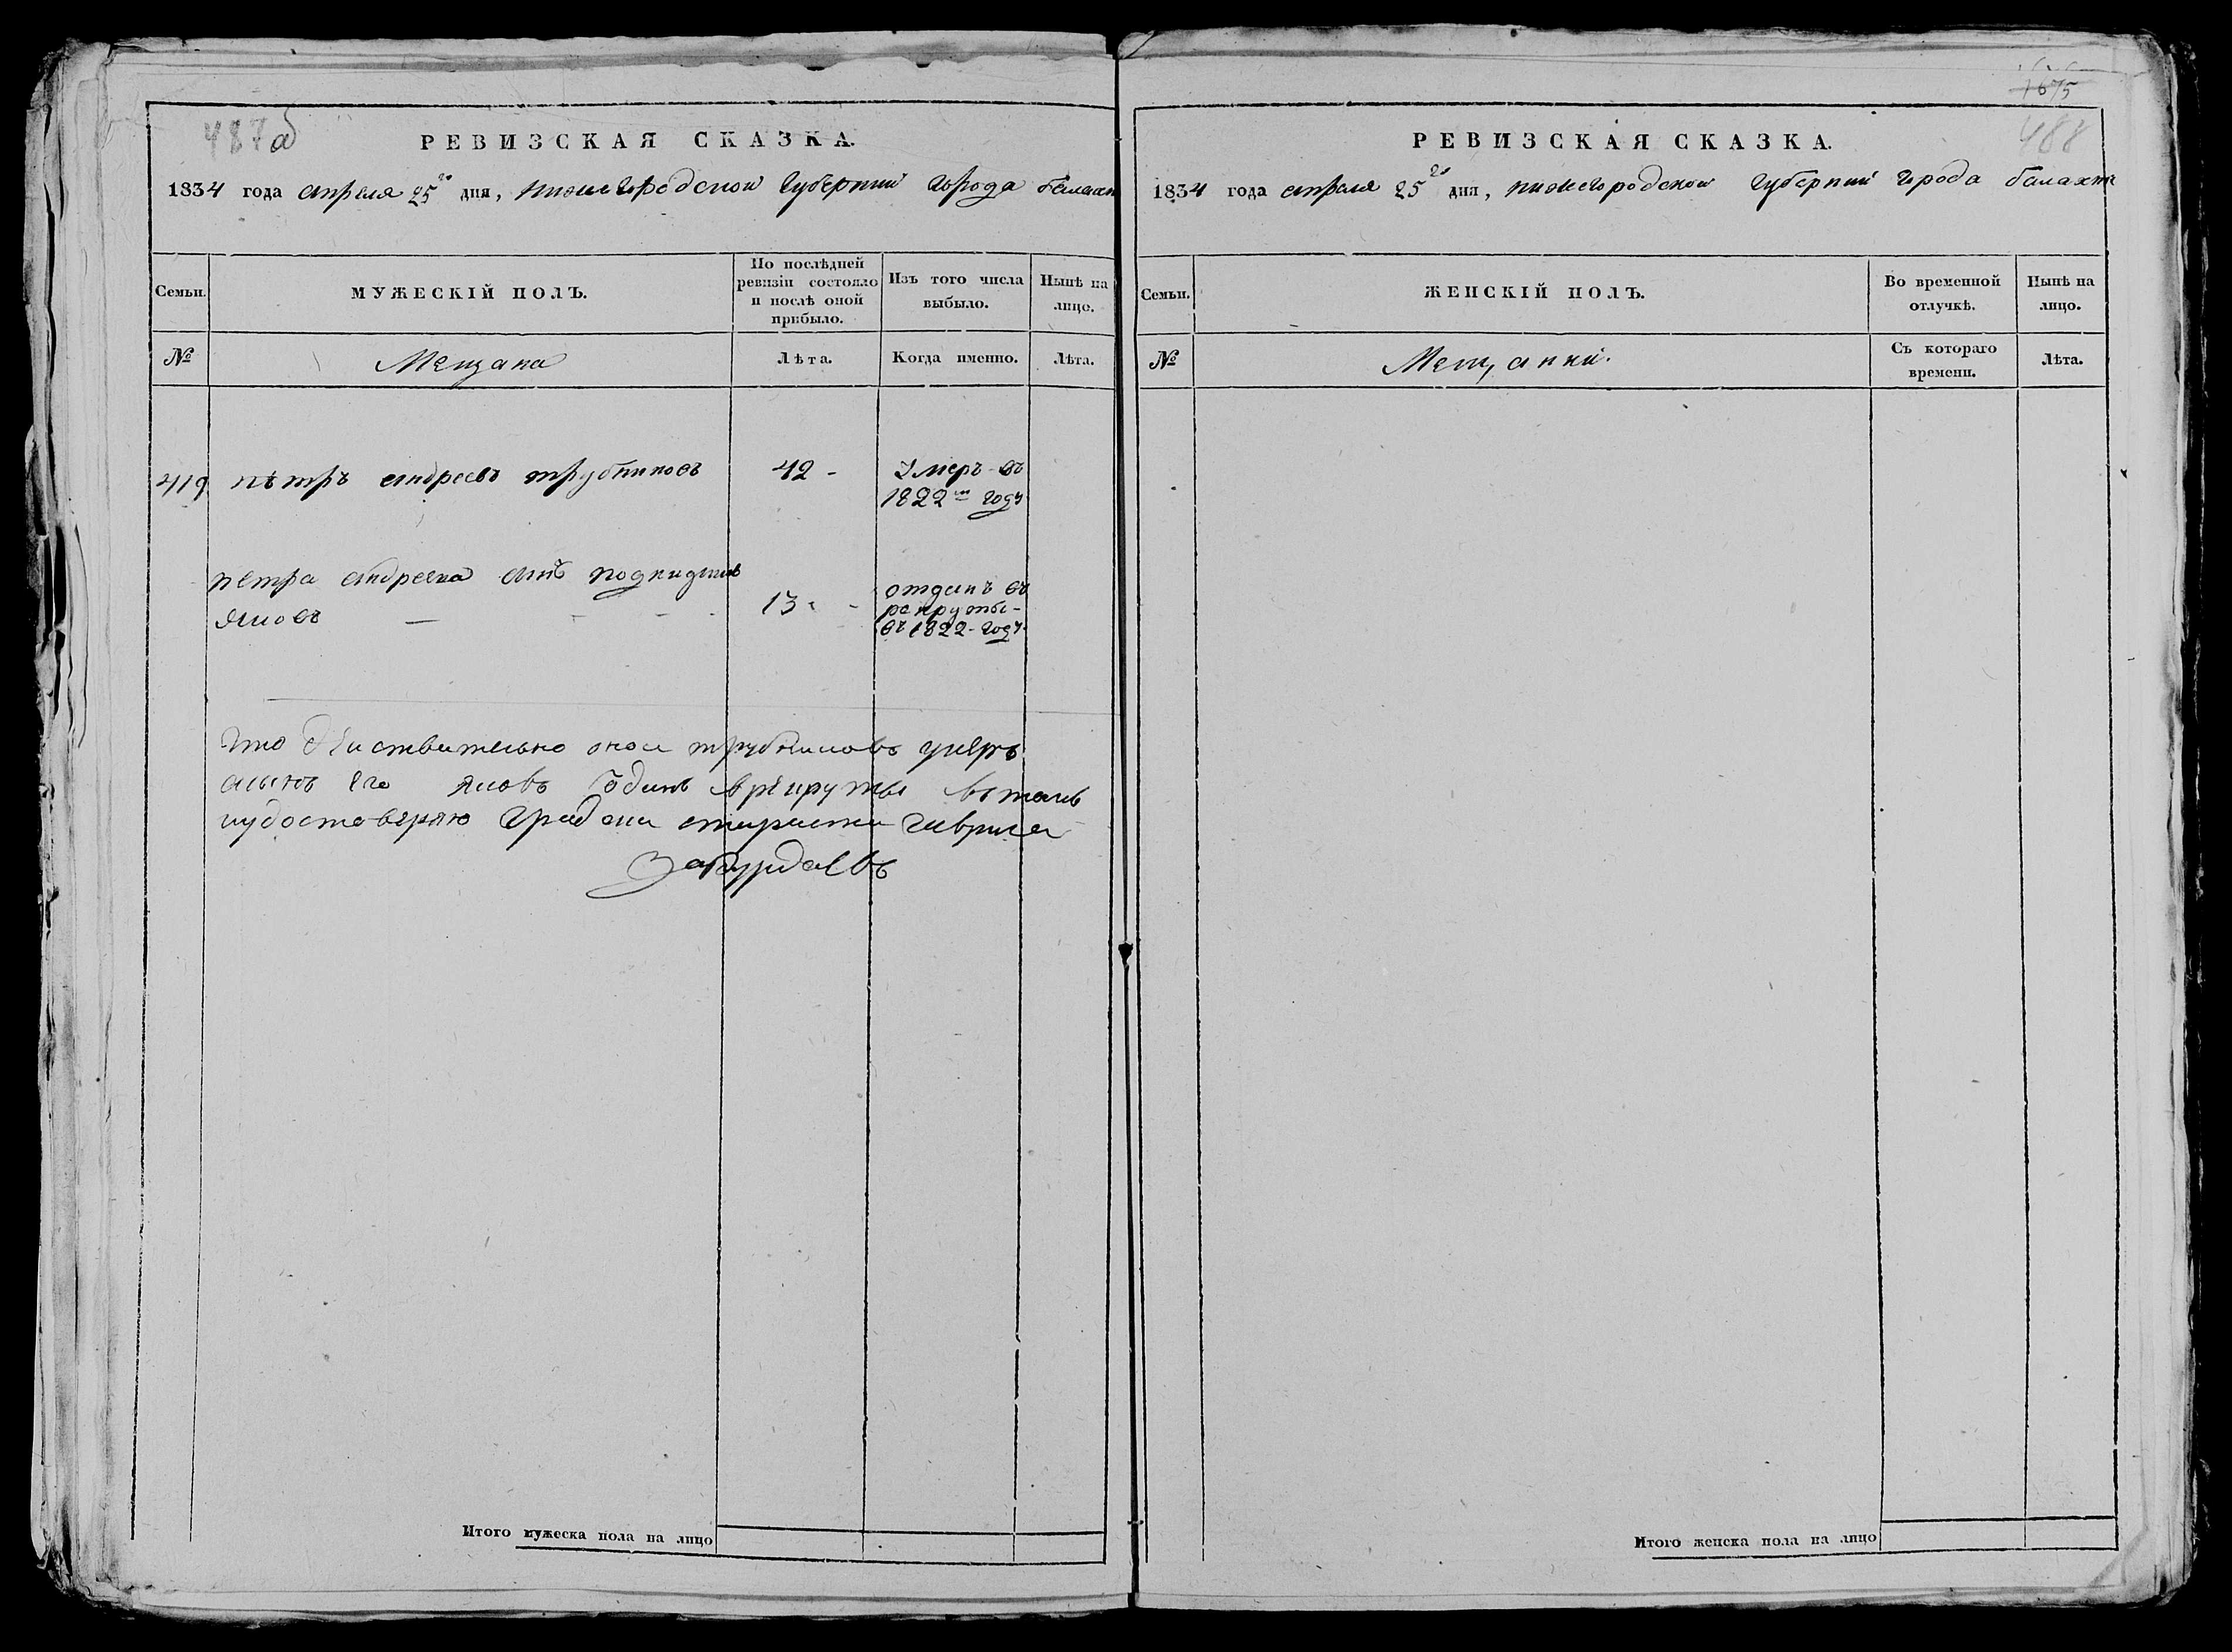 487 об
РЕВИЗСКАЯ СКАЗКА.
1834 года апреля 25го дня, нижегородской губернии города балахн
Семьи.
МУЖЕСКІЙ ПОЛЪ.
По послѣдней
ревизіи состояло
и послѣ оной
прибыло.
Изъ того числа
выбыло.
Нынѣ на
лицо.
№
Мещана
Лѣта.
Когда именно.
Лѣта.
419 пѣтръ андреевъ трубников 42 - Умеръ въ
1822м году
петра андреева сынъ подкидышъ
яковъ 13 - отданъ въ
рекруты -
въ 1822 - году
Что действительно оной трубниковъ умеръ
асынъ его яковъ отданъ врекруты
иудостоверяю градски староста гаврила
Забурдаевъ
Итого мужеска пола на лицо
1675
488
РЕВИЗСКАЯ СКАЗКА.
1834 года апреля 25го дня, нижегородской губернии города балахны
Семьи.
ЖЕНСКІЙ ПОЛЪ.
Во временной
отлучкѣ.
Нынѣ на
лицо.
№
Мещанки.
Съ котораго
времени.
Лѣта.
Итого женска пола на лицо